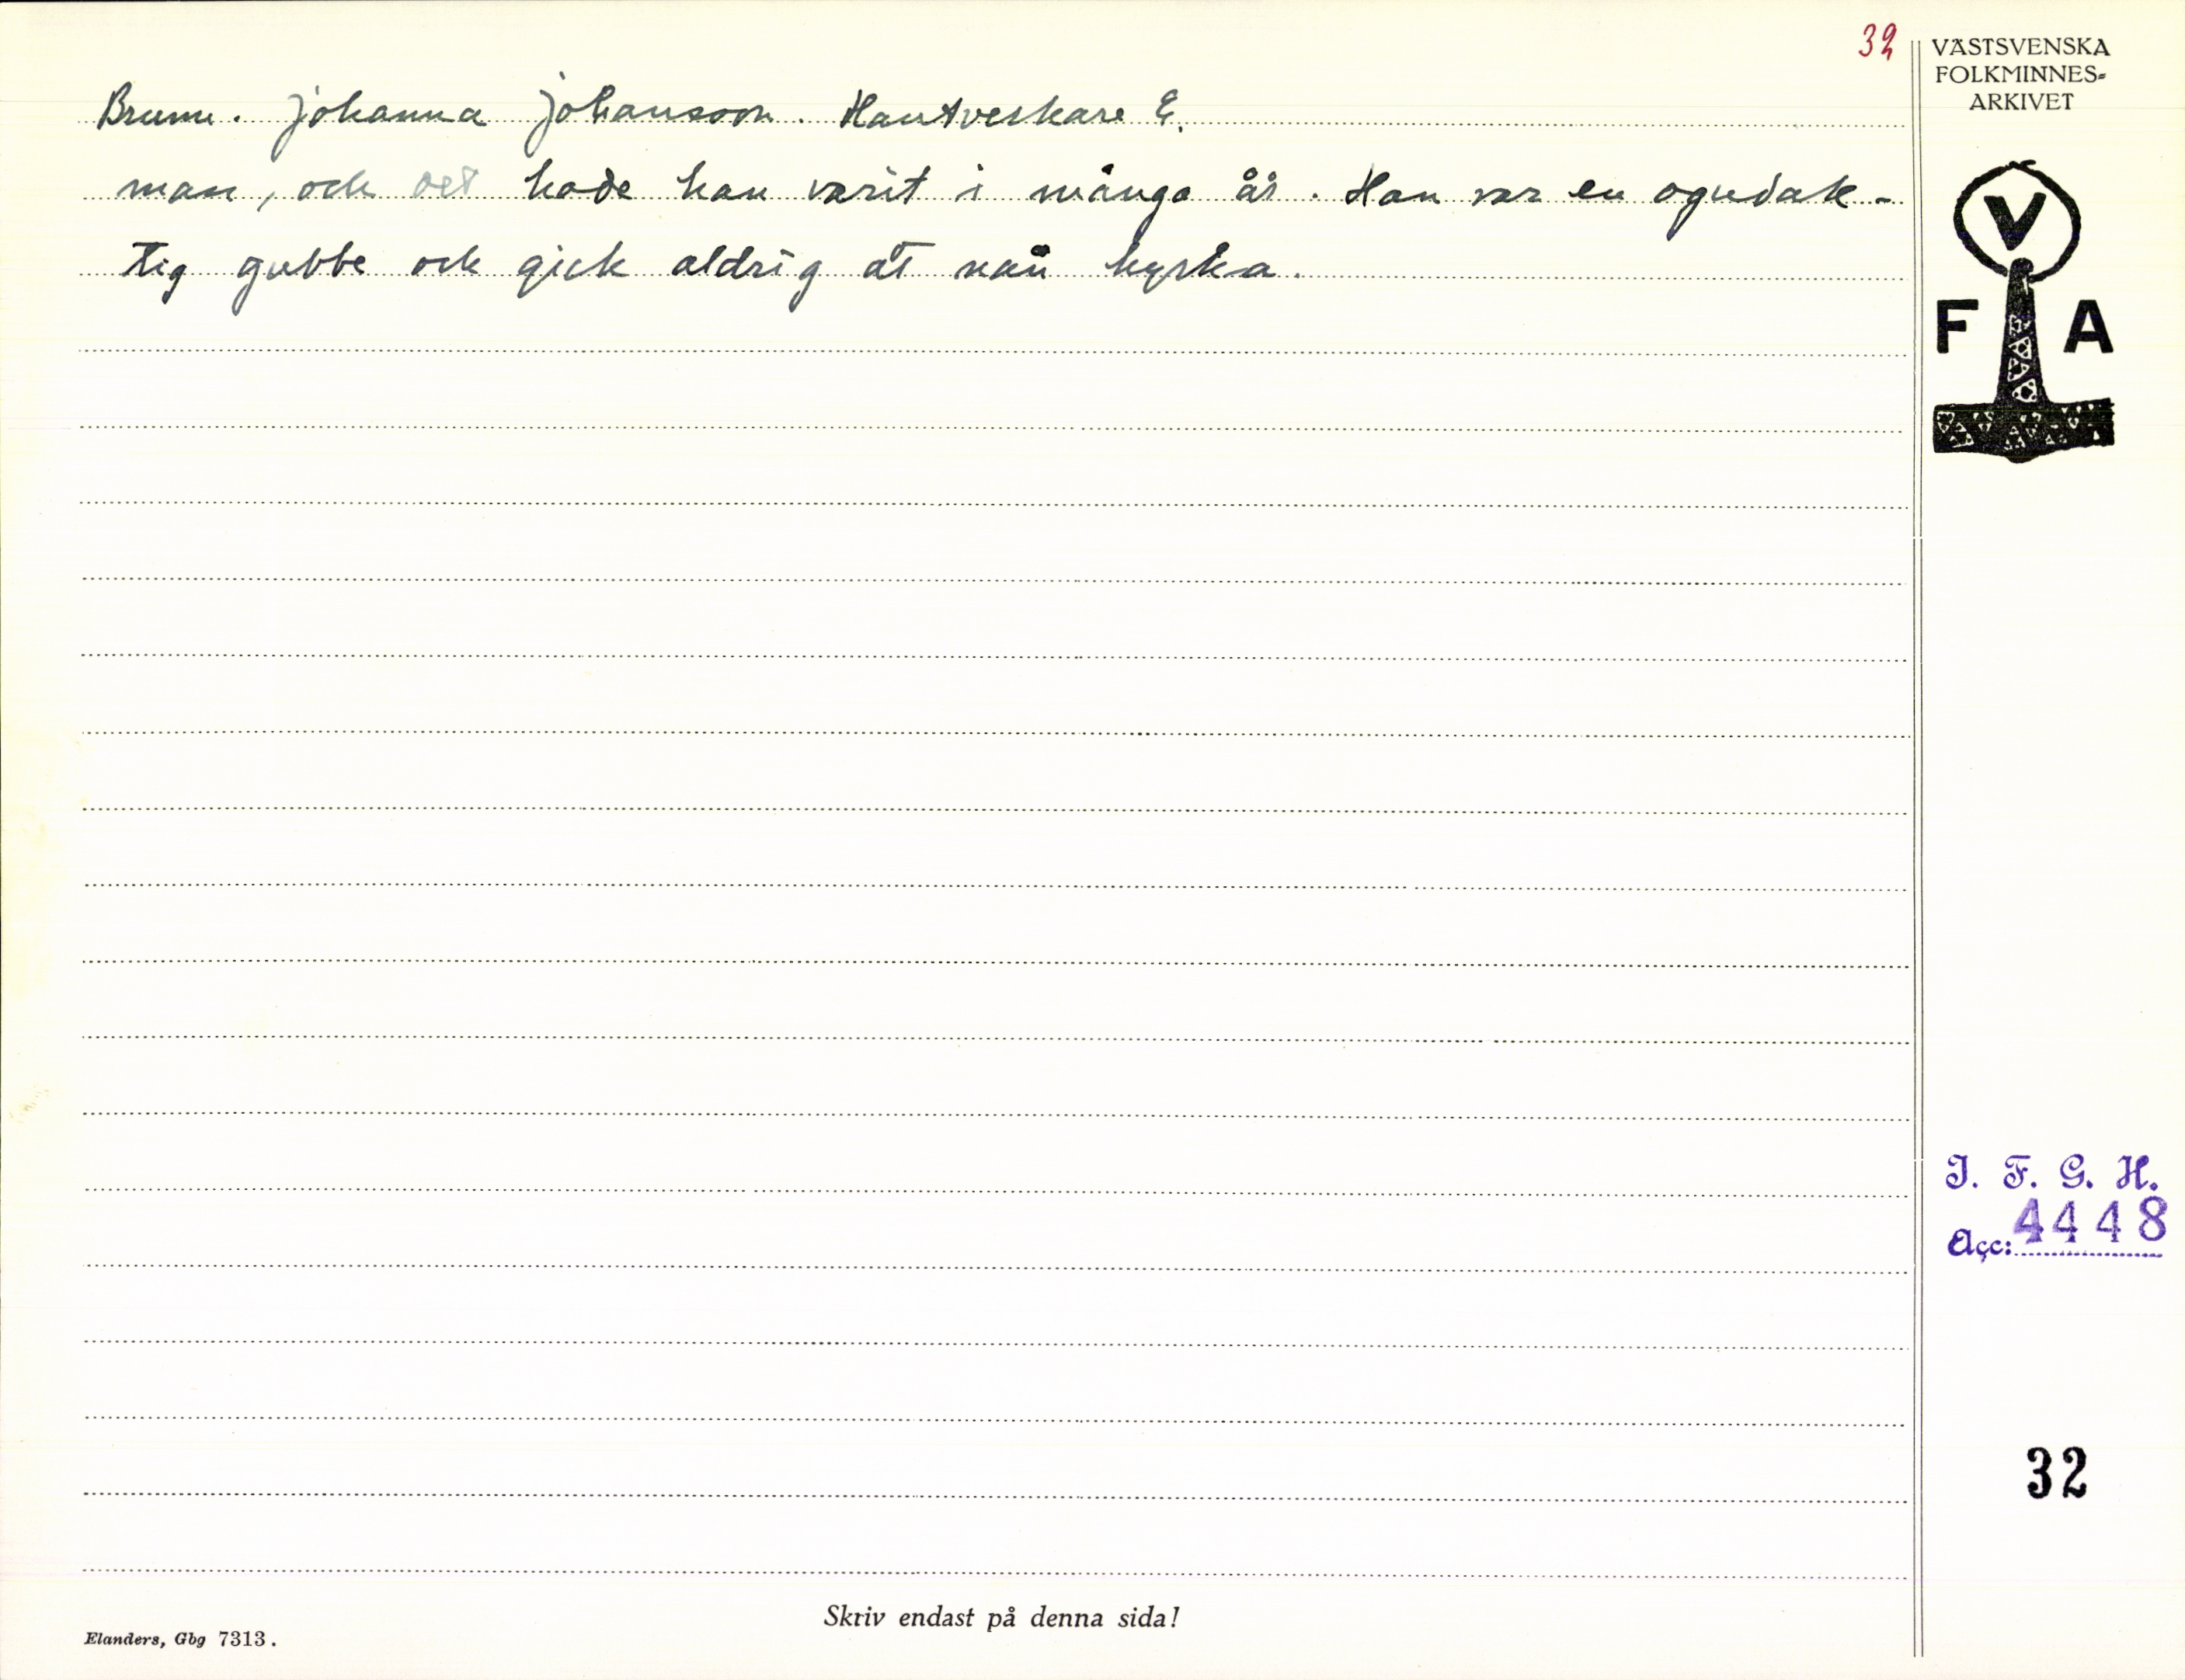 32
VÄSTSVENSKA
FOLKMINNES-
ARKIVET
Brunn. Johanna Johansson. Hantverkare E.
man, och det hade han varit i många år. Han var en ogudak-
tig gubbe och gick aldrig åt nån kyrka.
V
F A
I. F. G. H.
Acc: 4448
32
Skriv endast på denna sida!
Elanders, Gbg 7313.